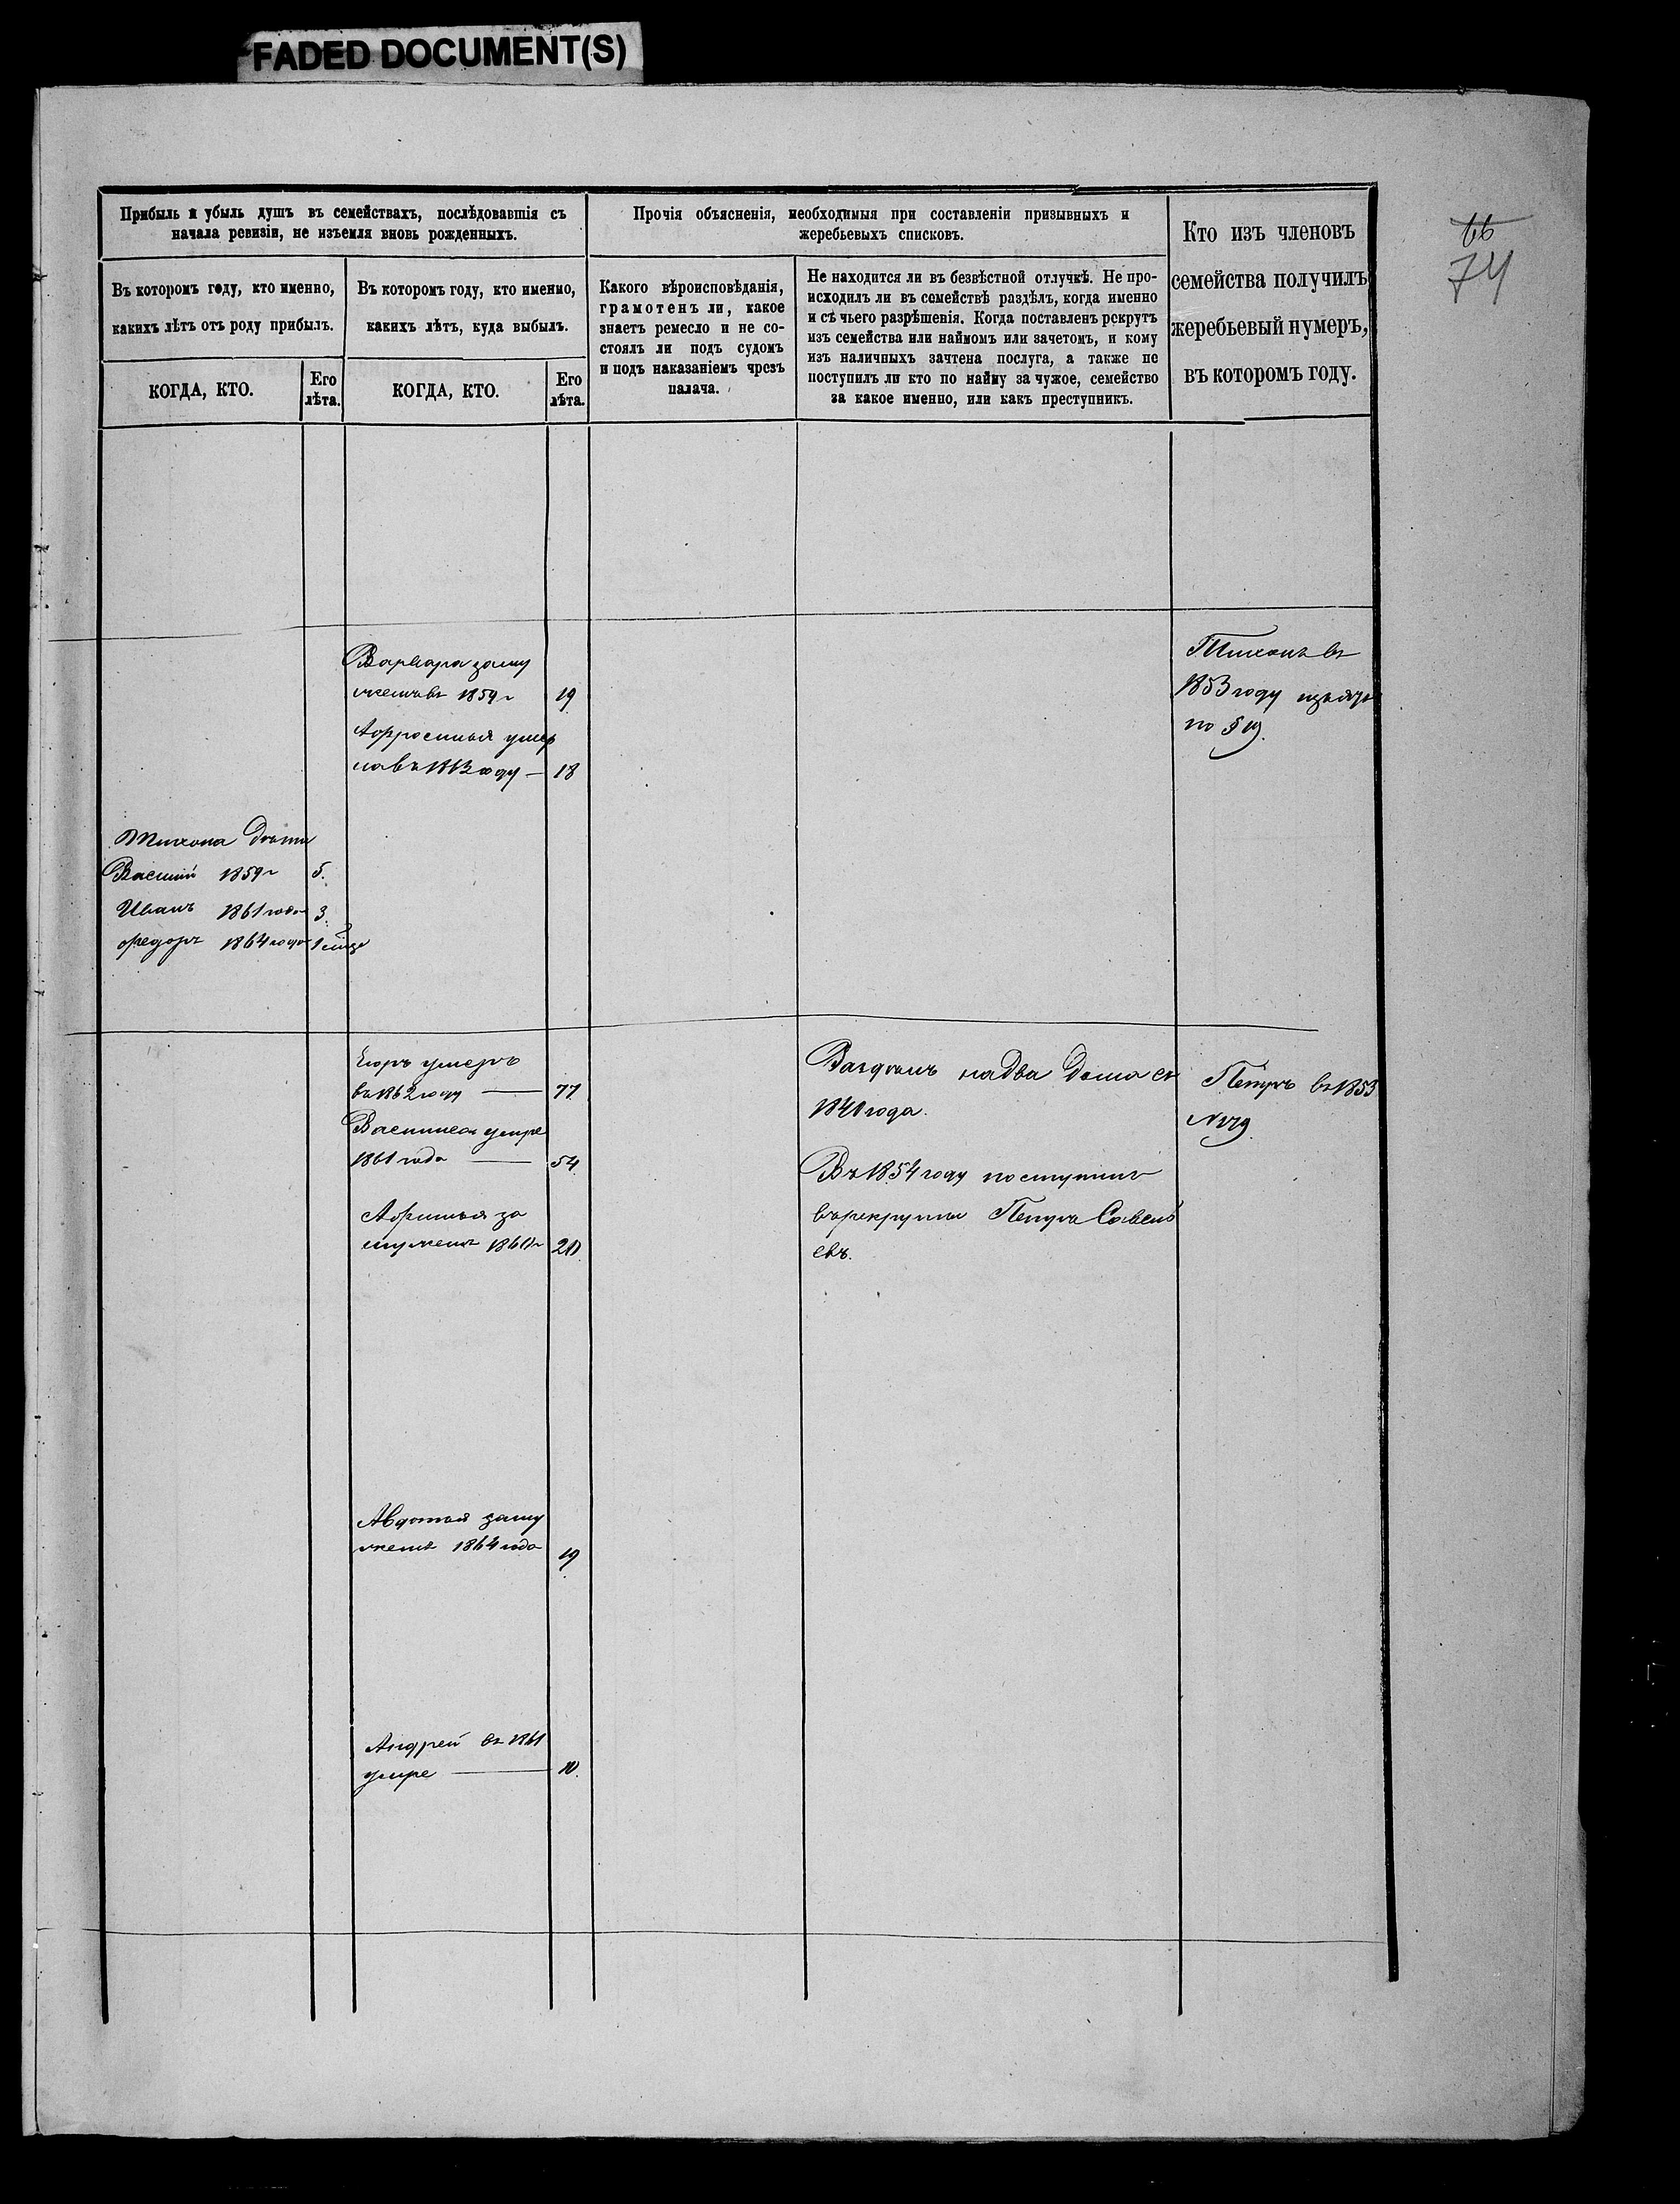 FADED DOCUMENT(S)
66
74
Прибыль и убыль душъ въ семействахъ, послѣдовавшія съ
начала ревизіи, не изъемля вновь рожденныхъ.
Въ которомъ году, кто именно,
какихъ лѣтъ отъ роду прибылъ.
КОГДА, КТО.
Его
лѣта.
Въ которомъ году, кто именно,
какихъ лѣтъ, куда выбылъ.
КОГДА, КТО.
Его
лѣта.
Прочія объясненія, необходимыя при составленіи призывныхъ и
жеребьевыхъ списковъ.
Какого вѣроисповѣданія,
грамотенъ ли, какое
знаетъ ремесло и не со-
стоялъ ли подъ судомъ
и подъ наказаніемъ чрезъ
палача.
Не находится ли въ безвѣстной отлучкѣ. Не про-
исходилъ ли въ семействѣ раздѣлъ, когда именно
и съ чьего разрѣшенія. Когда поставленъ рекрутъ
изъ семейства или наймомъ или зачетомъ, и кому
изъ наличныхъ зачтена послуга, а также не
поступилъ ли кто по найму за чужое, семейство
за какое именно, или какъ преступникъ.
Кто изъ членовъ
семейства получилъ
жеребьевый нумеръ,
въ которомъ году.
Варвара заму
жемъ въ 1859 г 19
Афросинья умер
ла въ 1863 году — 18
Тихонъ въ
1853 году изъятъ
по § 19.
Тихона дѣти
Василий 1859 г 5.
Иванъ 1861 года 3.
Федоръ 1864 года 1
Егоръ умеръ
въ 1862 году — 77
Василиса умре
1861 года — 54
Афимья за
мужемъ 1860 г 20.
Раздѣлъ на два дома съ
1840 года.
Въ 1854 году поступилъ
въ рекруты Петръ Савель
евъ.
Петръ въ 1853
Авдотья заму
жемъ 1864 года 19.
Андрей въ 1861
умре — 10.